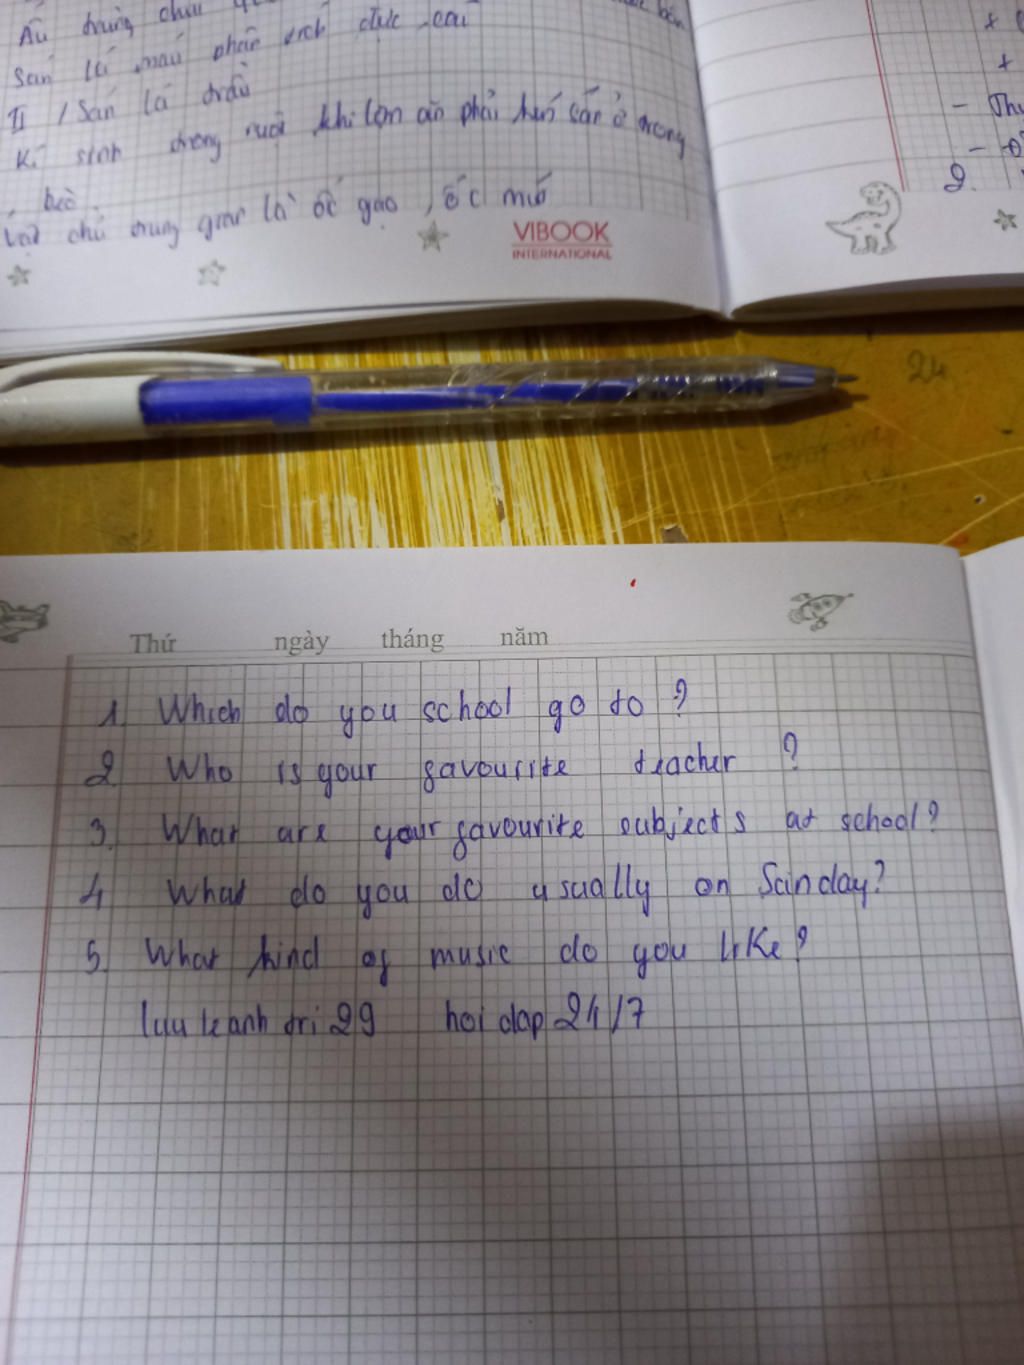 Ấu trùng chui
Sán lá máu phân tích được
II / Sán lá
Kí sinh trong ruột khi lợn ăn phải sán ở trong
bèo.
Vật chủ trung gian là ốc gạo, ốc mút
VIBOOK
INTERNATIONAL
+
+
- Thu
-
2.
24
Thứ ngày tháng năm
1. Which do you school go to ?
2 Who is your favourite teacher ?
3. What are your favourite subjects at school?
4 What do you do usually on Sunday?
5. What kind of music do you like?
luu le anh tri 29 hoi dap 24/7